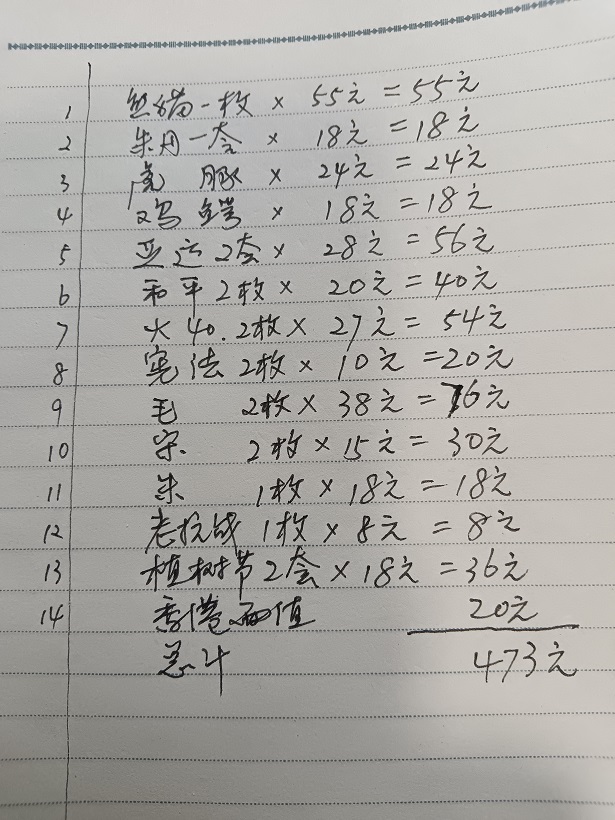 1 熊猫一枚 × 55元 = 55元
2 朱用一套 × 18元 = 18元
3 虎 豚 × 24元 = 24元
4 鸡 鳄 × 18元 = 18元
5 亚运2套 × 28元 = 56元
6 和平2枚 × 20元 = 40元
7 大40.2枚 × 27元 = 54元
8 宪法2枚 × 10元 = 20元
9 毛 2枚 × 38元 = 76元
10 宋 2枚 × 15元 = 30元
11 朱 1枚 × 18元 = 18元
12 老抗战 1枚 × 8元 = 8元
13 植树节2套 × 18元 = 36元
14 香港面值 20元
总计 473元